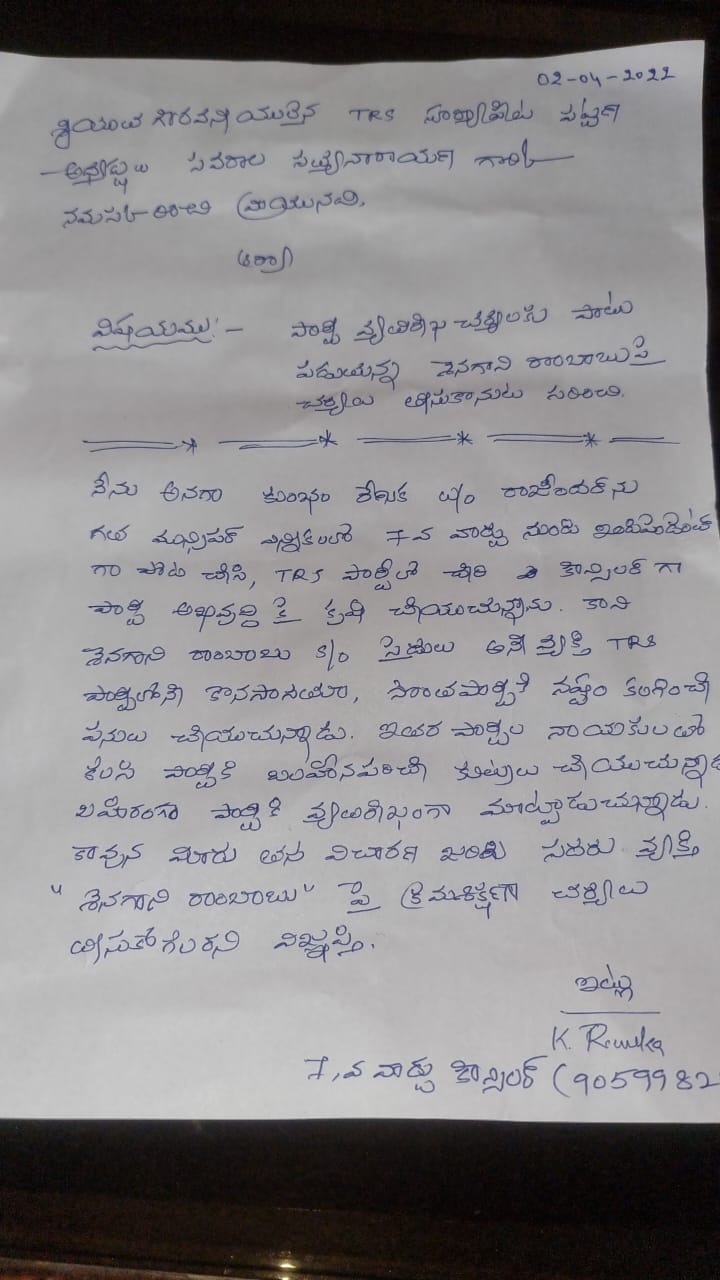 02-04-2022
శ్రీయుత గౌరవనీయులైన TRS సూర్యాపేట పట్టణ
అధ్యక్షులు సవరాల సత్యనారాయణ గారికి
నమస్కరించి వ్రాయునది,
ఆర్యా
విషయము:- పార్టీ వ్యతిరేఖ చర్యలకు పాటు
పడుచున్న శెనగాని రాంబాబుపై
చర్యలు తీసుకొనుట గురించి.
నేను అనగా కుంభం రేణుక w/o రాజేందర్ ను
గత మున్సిపల్ ఎన్నికలలో 7వ వార్డు నుండి ఇండిపెండెంట్
గా పోటి చేసి, TRS పార్టీలో చేరి కౌన్సిలర్ గా
పార్టీ అభివృద్ధి కై కృషి చేయుచున్నాను. కాని
శెనగాని రాంబాబు s/o సైదులు అనే వ్యక్తి TRS
పార్టీలోనే కొనసాగుతూ, సొంతపార్టీకే నష్టం కలిగించే
పనులు చేయుచున్నాడు. ఇతర పార్టీల నాయకులతో
కలిసి పార్టీకి బలహీనపరిచే కుట్రలు చేయుచున్నాడు
బహిరంగా పార్టీ కి వ్యతిరేఖంగా మాట్లాడుచున్నాడు.
కావున మీరు తగు విచారణ జరిపి సదరు వ్యక్తి
"శెనగాని రాంబాబు" పై క్రమశిక్షణా చర్యలు
తీసుకోగలరని విజ్ఞప్తి.
ఇట్లు
K. Renuka
7,వ వార్డు కౌన్సిలర్ (9059982